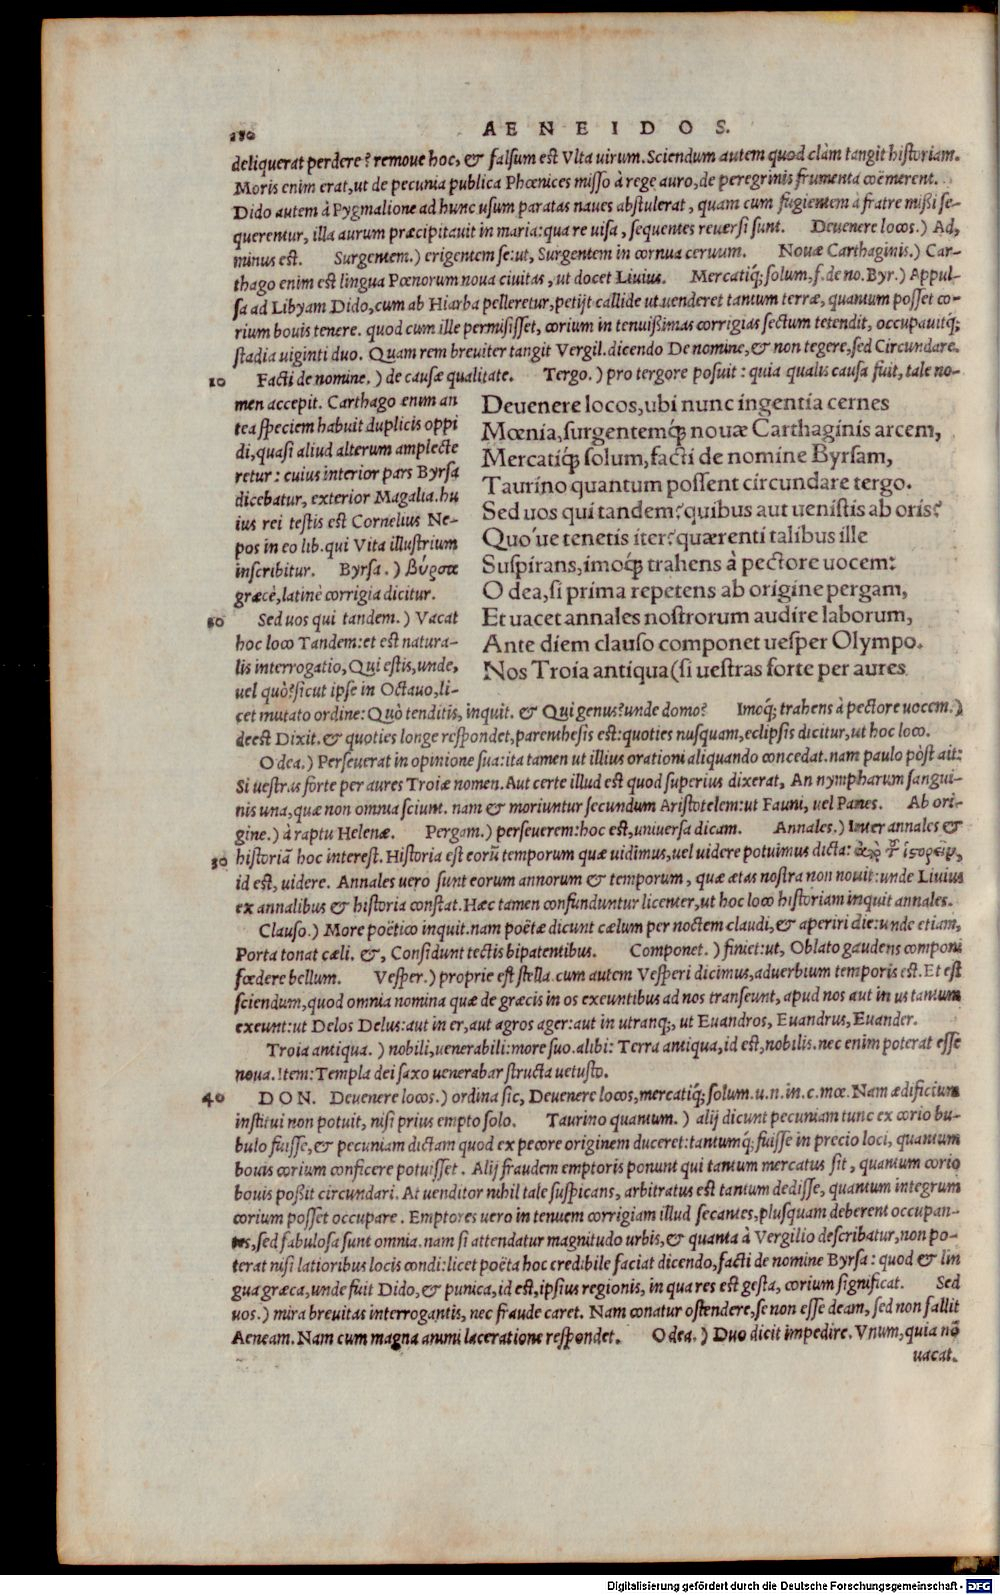 180
AENEIDOS.
deliquerat perdere? remoue hoc, & falsum est Vlta uirum. Sciendum autem quod clàm tangit historiam.
Moris enim erat, ut de pecunia publica Phœnices misso à rege auro, de peregrinis frumenta coëmerent.
Dido autem à Pygmalione ad hunc usum paratas naues abstulerat, quam cum fugientem à fratre mißi se-
querentur, illa aurum præcipitauit in maria: qua re uisa, sequentes reuersi sunt. Deuenere locos.) Ad,
minus est. Surgentem.) erigentem se: ut, Surgentem in cornua ceruum. Nouæ Carthaginis.) Car-
thago enim est lingua Pœnorum noua ciuitas, ut docet Liuius. Mercatiq́; solum, f. de no. Byr.) Appul-
sa ad Libyam Dido, cum ab Hiarba pelleretur, petijt callide ut uenderet tantum terræ, quantum posset co-
rium bouis tenere. quod cum ille permisisset, corium in tenuißimas corrigias sectum tetendit, occupauitq́;
stadia uiginti duo. Quam rem breuiter tangit Vergil. dicendo De nomine, & non tegere, sed Circundare.
10 Facti de nomine.) de causæ qualitate. Tergo.) pro tergore posuit: quia qualis causa fuit, tale no-
men accepit. Carthago enim an
tea speciem habuit duplicis oppi
di, quasi aliud alterum amplecte
retur: cuius interior pars Byrsa
dicebatur, exterior Magalia. hu
ius rei testis est Cornelius Ne-
pos in eo lib. qui Vita illustrium
inscribitur. Byrsa.) βύρσα
græcè, latinè corrigia dicitur.
20 Sed uos qui tandem.) Vacat
hoc loco Tandem: et est natura-
lis interrogatio, Qui estis, unde,
uel quò? sicut ipse in Octauo, li-
Deuenere locos, ubi nunc ingentia cernes
Mœnia, surgentemq́; nouæ Carthaginis arcem,
Mercatiq́; solum, facti de nomine Byrsam,
Taurino quantum possent circundare tergo.
Sed uos qui tandem? quibus aut uenistis ab oris?
Quo'ue tenetis iter? quærenti talibus ille
Suspirans, imoq́; trahens à pectore uocem:
O dea, si prima repetens ab origine pergam,
Et uacet annales nostrorum audire laborum,
Ante diem clauso componet uesper Olympo.
Nos Troia antiqua (si uestras forte per aures
cet mutato ordine: Quò tenditis, inquit. & Qui genus? unde domo? Imoq́; trahens à pectore uocem.)
deest Dixit. & quoties longe respondet, parenthesis est: quoties nusquam, eclipsis dicitur, ut hoc loco.
O dea.) Perseuerat in opinione sua: ita tamen ut illius orationi aliquando concedat. nam paulo pòst ait:
Si uestras forte per aures Troiæ nomen. Aut certe illud est quod superius dixerat, An nympharum sangui-
nis una, quæ non omnia scium. nam & moriuntur secundum Aristotelem: ut Fauni, uel Panes. Ab ori-
gine.) à raptu Helenæ. Pergam.) perseuerem: hoc est, uniuersa dicam. Annales.) Inter annales &
30 historiã hoc interest. Historia est eorũ temporum quæ uidimus, uel uidere potuimus dicta: ἀπὸ τ̃ ἱστορεῖν,
id est, uidere. Annales uero sunt eorum annorum & temporum, quæ ætas nostra non nouit: unde Liuius
ex annalibus & historia constat. Hæc tamen confunduntur licenter, ut hoc loco historiam inquit annales.
Clauso.) More poëtico inquit. nam poëtæ dicunt cælum per noctem claudi, & aperiri die: unde etiam,
Porta tonat cæli. &, Considunt tectis bipatentibus. Componet.) finiet: ut, Oblato gaudens componi
fœdere bellum. Vesper.) proprie est stella. cum autem Vesperi dicimus, aduerbium temporis est. Et est
sciendum, quod omnia nomina quæ de græcis in os exeuntibus ad nos transeunt, apud nos aut in us tantum
exeunt: ut Delos Delus: aut in er, aut agros ager: aut in utranq;, ut Euandros, Euandrus, Euander.
Troia antiqua.) nobili, uenerabili: more suo. alibi: Terra antiqua, id est, nobilis. nec enim poterat esse
noua. Item: Templa dei saxo uenerabar structa uetusto.
40 DON. Deuenere locos.) ordina sic, Deuenere locos, mercatiq́; solum. u. n. in. c. mœ. Nam ædificium
institui non potuit, nisi prius empto solo. Taurino quantum.) alij dicunt pecuniam tunc ex corio bu-
bulo fuisse, & pecuniam dictam quod ex pecore originem duceret: tantumq́; fuisse in precio loci, quantum
bouis corium conficere potuisset. Alij fraudem emptoris ponunt qui tantum mercatus sit, quantum corio
bouis poßit circundari. At uenditor nihil tale suspicans, arbitratus est tantum dedisse, quantum integrum
corium posset occupare. Emptores uero in tenuem corrigiam illud secantes, plusquam deberent occupan-
tes, sed fabulosa sunt omnia. nam si attendatur magnitudo urbis, & quanta à Vergilio describatur, non po-
terat nisi latioribus locis condi: licet poëta hoc credibile faciat dicendo, facti de nomine Byrsa: quod & lin
gua græca, unde fuit Dido, & punica, id est, ipsius regionis, in qua res est gesta, corium significat. Sed
uos.) mira breuitas interrogantis, nec fraude caret. Nam conatur ostendere, se non esse deam, sed non fallit
Aeneam. Nam cum magna animi laceratione respondet. O dea.) Duo dicit impedire. Vnum, quia nõ
uacat.
Digitalisierung gefördert durch die Deutsche Forschungsgemeinschaft - DFG